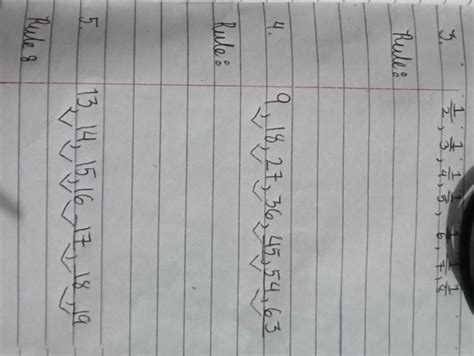 3. 1/2, 1/3, 1/4, 1/5, 1/6, 1/7, 1/8
Rule:
4. 9, 18, 27, 36, 45, 54, 63
Rule:
5. 13, 14, 15, 16, 17, 18, 19
Rule 8